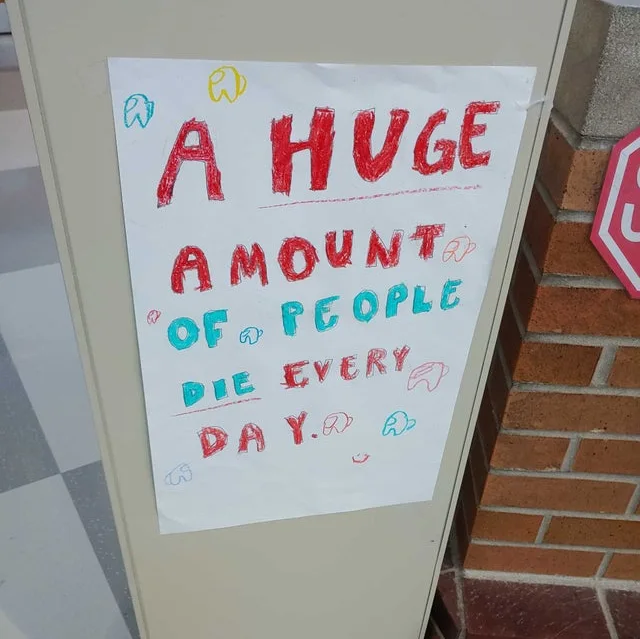 A HUGE
AMOUNT
OF PEOPLE
DIE EVERY
DAY.